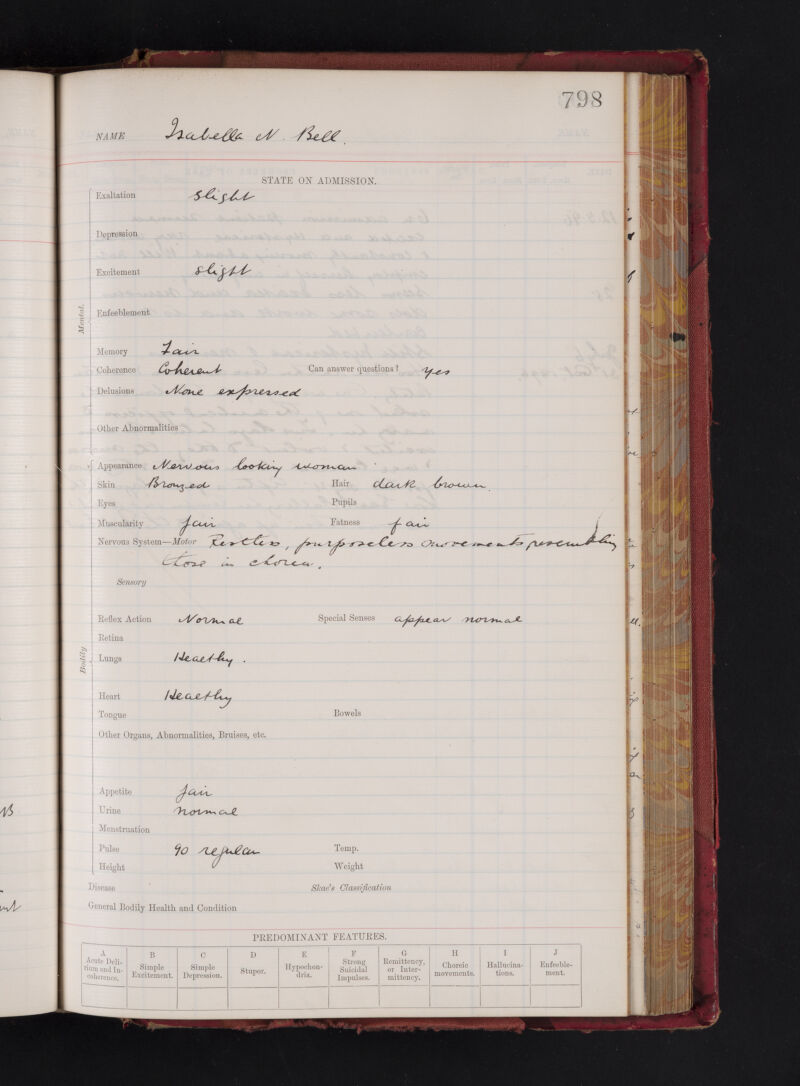 798
NAME Isabella N. Bell.
STATE ON ADMISSION.
Exaltation Slight
Depression
Excitement slight
Mental.
Enfeeblement
Memory Fair
Coherence Coherent Can answer questions? yes
Delusions None expressed
Other Abnormalities
Appearance Nervous looking woman
Skin Bronzed Hair dark brown.
Eyes Pupils
Muscularity fair Fatness fair
Nervous System—Motor Restless, purposeless movements resembling
those in chorea.
Sensory
Reflex Action Normal Special Senses appear normal
Retina
Bodily
Lungs Healthy.
Heart Healthy
Tongue Bowels
Other Organs, Abnormalities, Bruises, etc.
Appetite fair
Urine normal
Menstruation
Pulse 90 regular Temp.
Height Weight
Disease Skae's Classification
General Bodily Health and Condition
PREDOMINANT FEATURES.
A B C D E F G H I J
Acute Delirium and Incoherence. Simple Excitement. Simple Depression. Stupor. Hypochondria. Strong Suicidal Impulses. Remittency, or Intermittency. Choreic movements. Hallucinations. Enfeeblement.